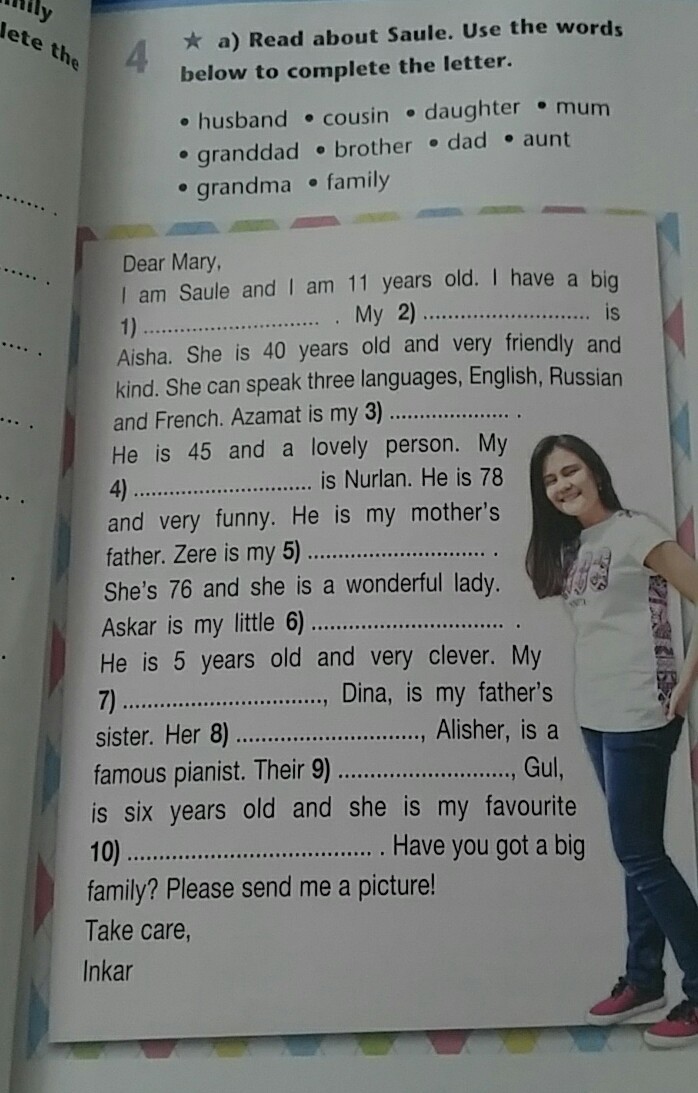 mily
lete the
4 ★ a) Read about Saule. Use the words
below to complete the letter.
• husband • cousin • daughter • mum
• granddad • brother • dad • aunt
• grandma • family
Dear Mary,
I am Saule and I am 11 years old. I have a big
1) .............................. . My 2) .............................. is
Aisha. She is 40 years old and very friendly and
kind. She can speak three languages, English, Russian
and French. Azamat is my 3) .................... .
He is 45 and a lovely person. My
4) .............................. is Nurlan. He is 78
and very funny. He is my mother's
father. Zere is my 5) .............................. .
She's 76 and she is a wonderful lady.
Askar is my little 6) .............................. .
He is 5 years old and very clever. My
7) .............................., Dina, is my father's
sister. Her 8) .............................., Alisher, is a
famous pianist. Their 9) .............................., Gul,
is six years old and she is my favourite
10) .............................. . Have you got a big
family? Please send me a picture!
Take care,
Inkar